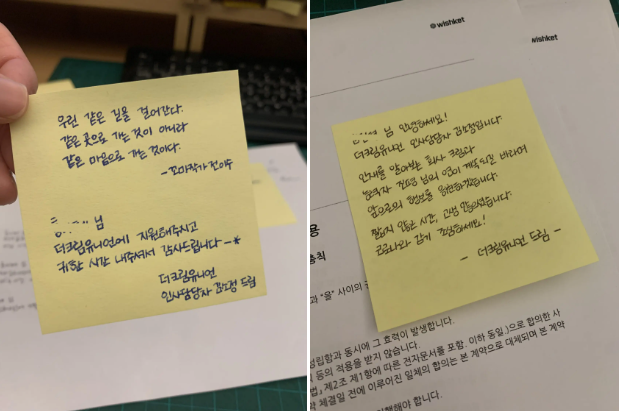 우린 같은 길을 걸어간다.
같은 곳으로 가는 것이 아니라
같은 마음으로 가는 것이다.
- 꼬마작가 전이수
님
더크림유니언에 지원해주시고
귀한 시간 내주셔서 감사드립니다 -*
더크림유니언
인사담당자 김소정 드림
wishket
wishket
님 안녕하세요!
더크림유니언 인사담당자 김소정입니다.
인재를 알아보는 회사 크림과
능력자 님의 연이 계속되길 바라며
앞으로의 행보를 응원하겠습니다.
짧지 않은 시간, 고생 많으셨습니다.
조심하세요!
- 더크림유니언 드림 -
용
총칙
과 "을" 사이의
성립함과 동시에 그 효력이 발생합니다.
등의 적용을 받지 않습니다.
법」 제2조 제1항에 따른 전자문서를 포함. 이하 동일.)으로 합의한 사
약 체결일 전에 이루어진 일체의 합의는 본 계약으로 대체되며 본 계약
행해야 합니다.